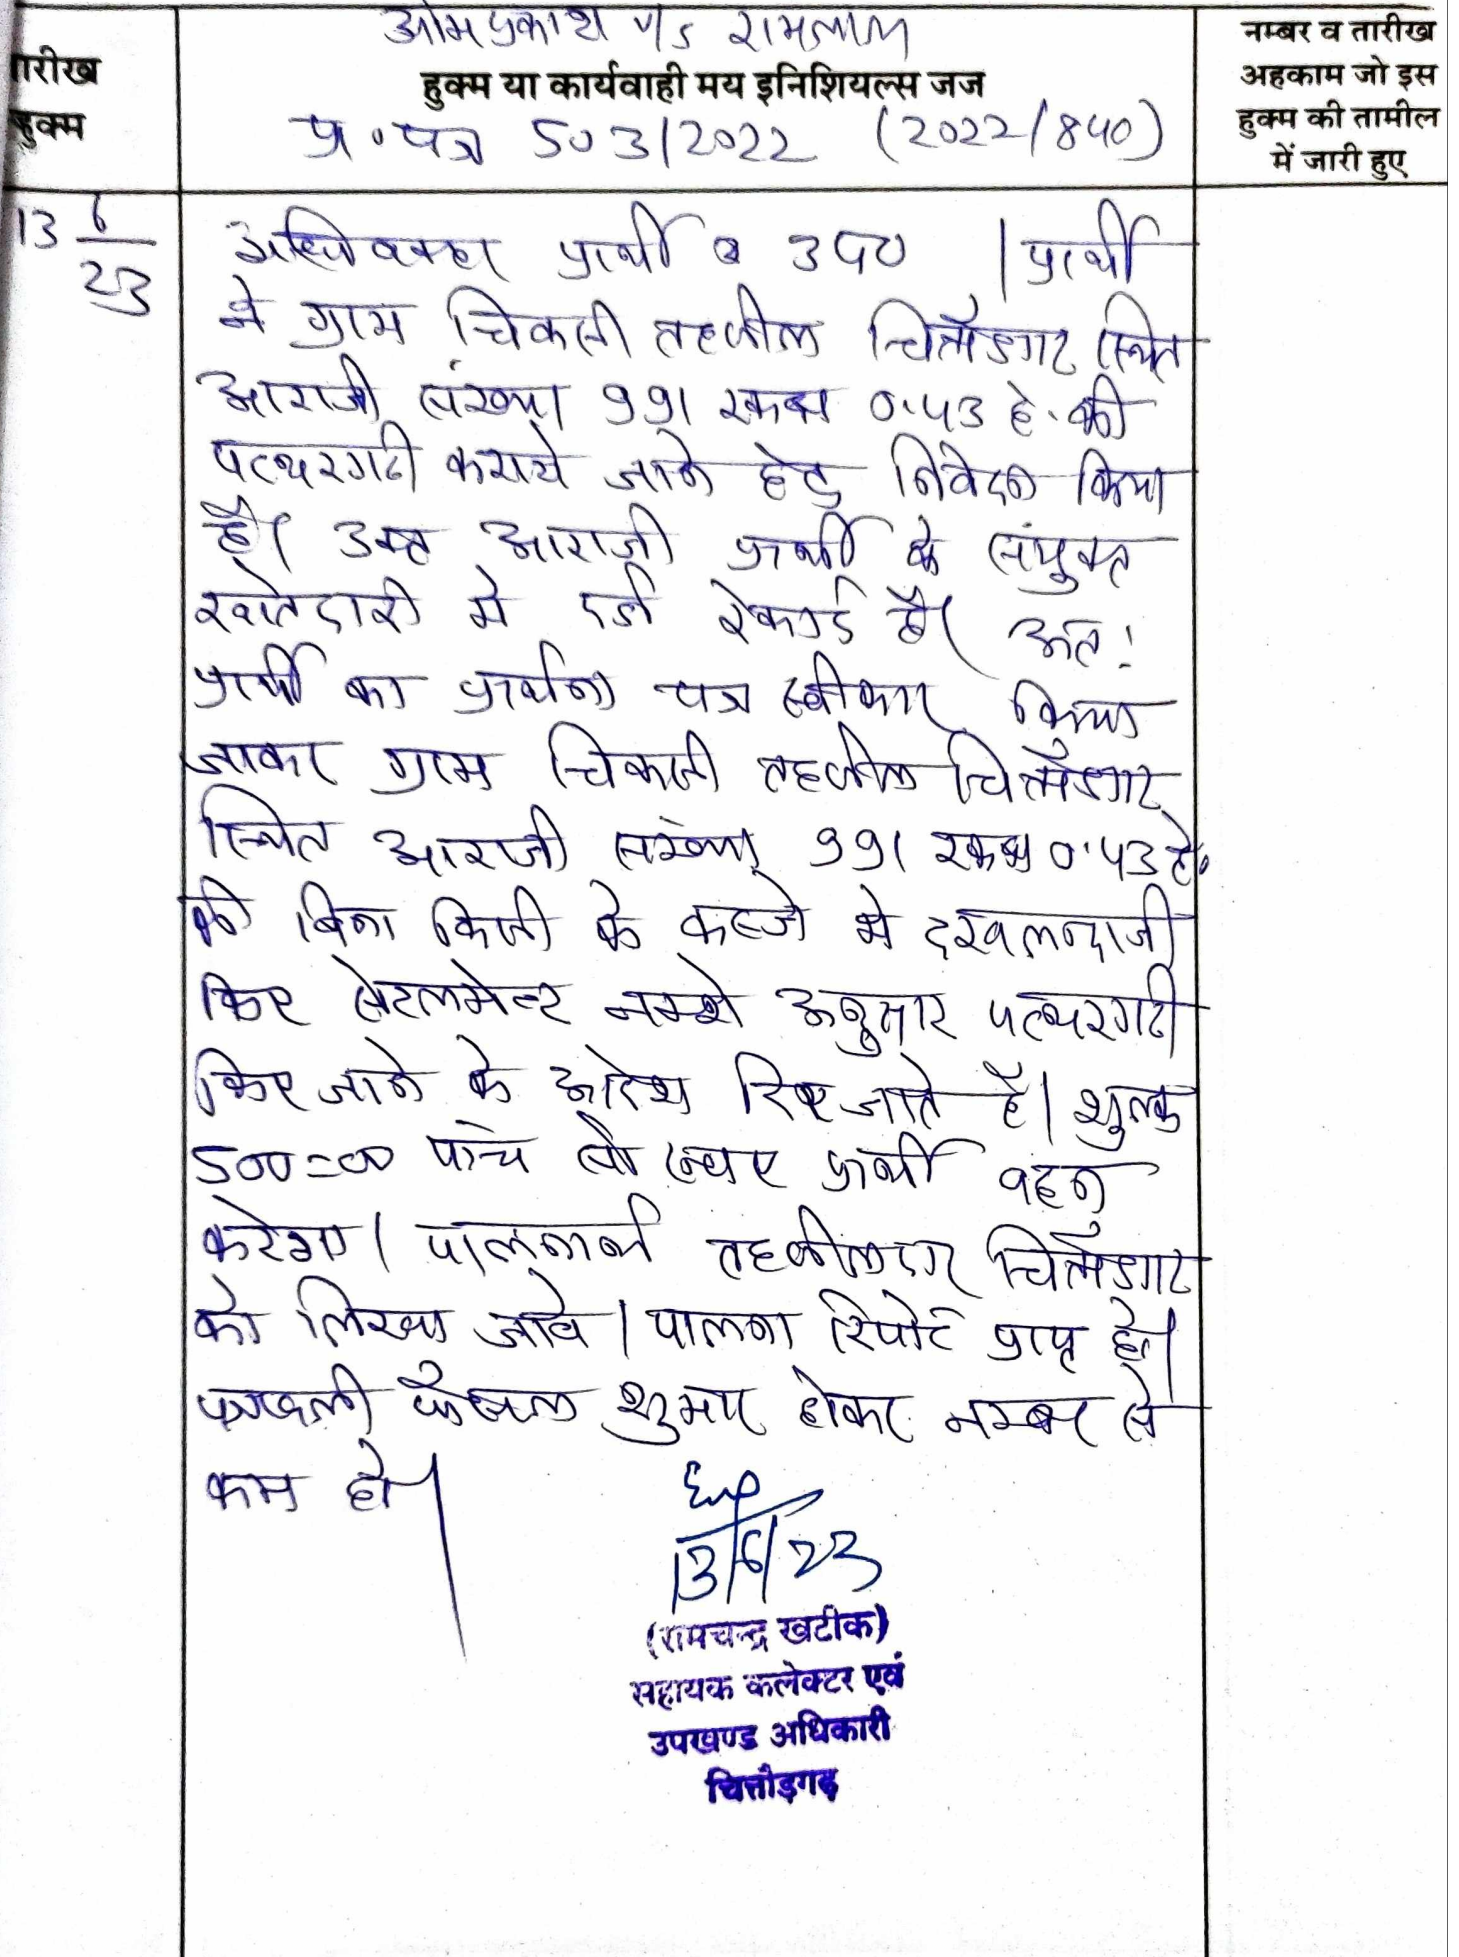 ओमप्रकाश v/s रामलाल
तारीख
हुक्म
हुक्म या कार्यवाही मय इनिशियल्स जज
प्र॰पत्र 503/2022 (2022/840)
नम्बर व तारीख
अहकाम जो इस
हुक्म की तामील
में जारी हुए
13 6/23
अधिवक्ता प्रार्थी उप॰ | प्रार्थी
ने ग्राम चिकसी तहसील चित्तौडगढ स्थित
आराजी संख्या 991 रकबा 0.43 हे. की
पत्थरगढी कराये जाने हेतु निवेदन किया
है। उक्त आराजी प्रार्थी के संयुक्त
खातेदारी मे दर्ज रेकार्ड है। अत:
प्रार्थी का प्रार्थना पत्र स्वीकार किया
जाकर ग्राम चिकसी तहसील चित्तौडगढ
स्थित आराजी संख्या 991 रकबा 0.43 हे.
की बिना किसी के कब्जे मे दखलन्दाजी
किए सेटलमेन्ट नक्शे अनुसार पत्थरगढी
किए जाने के आदेश दिए जाते है। शुल्क
500=00 पांच सौ रूपए प्रार्थी वहन
करेगा। पालनार्थ तहसीलदार चित्तौडगढ
को लिखा जावे। पालना रिपोर्ट प्राप्त हो।
पत्रावली फैसल शुमार होकर नम्बर से
कम हो।
13/6/23
(रामचन्द्र खटीक)
सहायक कलेक्टर एवं
उपखण्ड अधिकारी
चित्तौड़गढ़